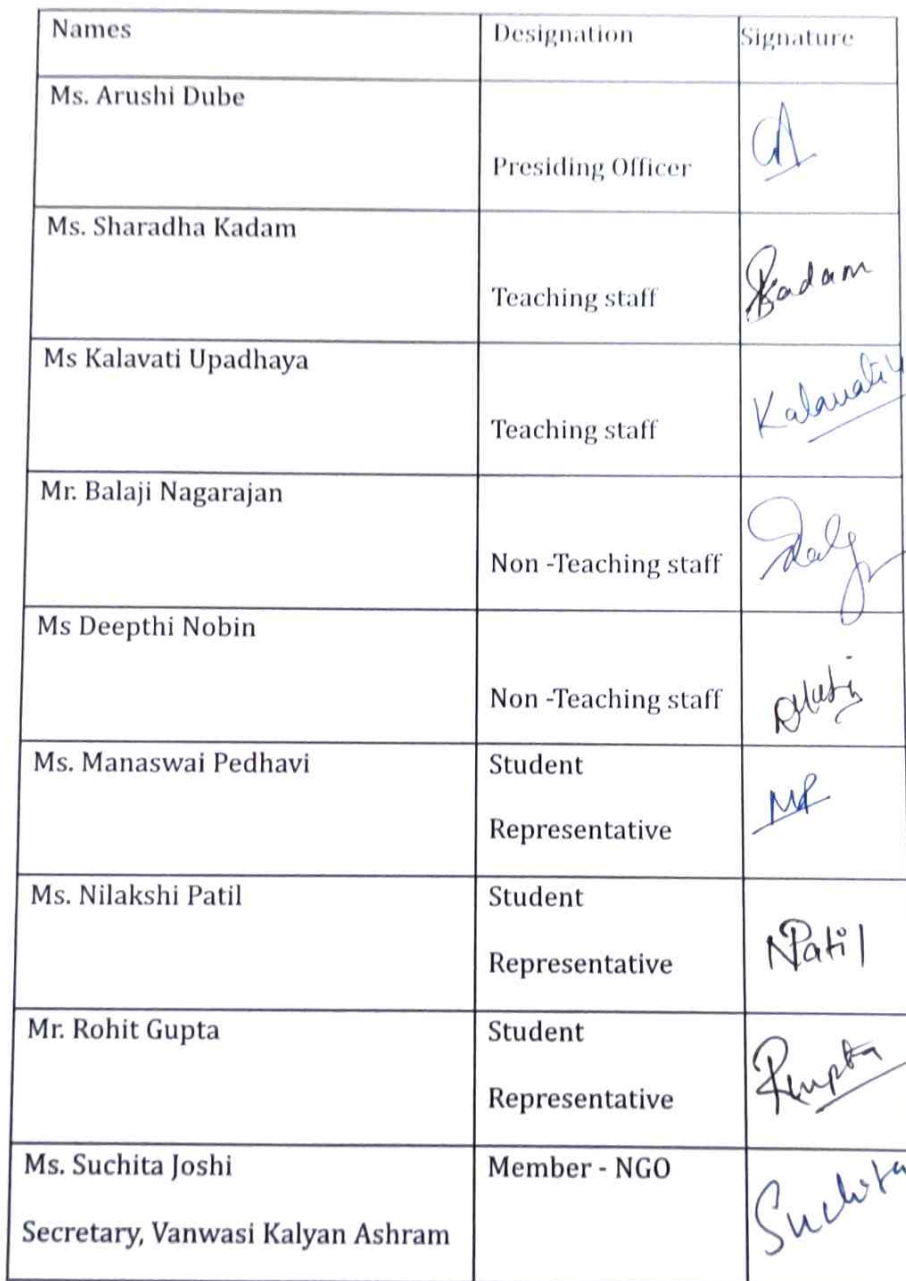 Names Designation Signature
Ms. Arushi Dube
Presiding Officer
Ms. Sharadha Kadam
Teaching staff Kadam
Ms Kalavati Upadhaya
Teaching staff Kalavati U
Mr. Balaji Nagarajan
Non -Teaching staff
Ms Deepthi Nobin
Non -Teaching staff
Ms. Manaswai Pedhavi Student
Representative MP
Ms. Nilakshi Patil Student
Representative NPatil
Mr. Rohit Gupta Student
Representative RGupta
Ms. Suchita Joshi Member - NGO
Secretary, Vanwasi Kalyan Ashram Suchita